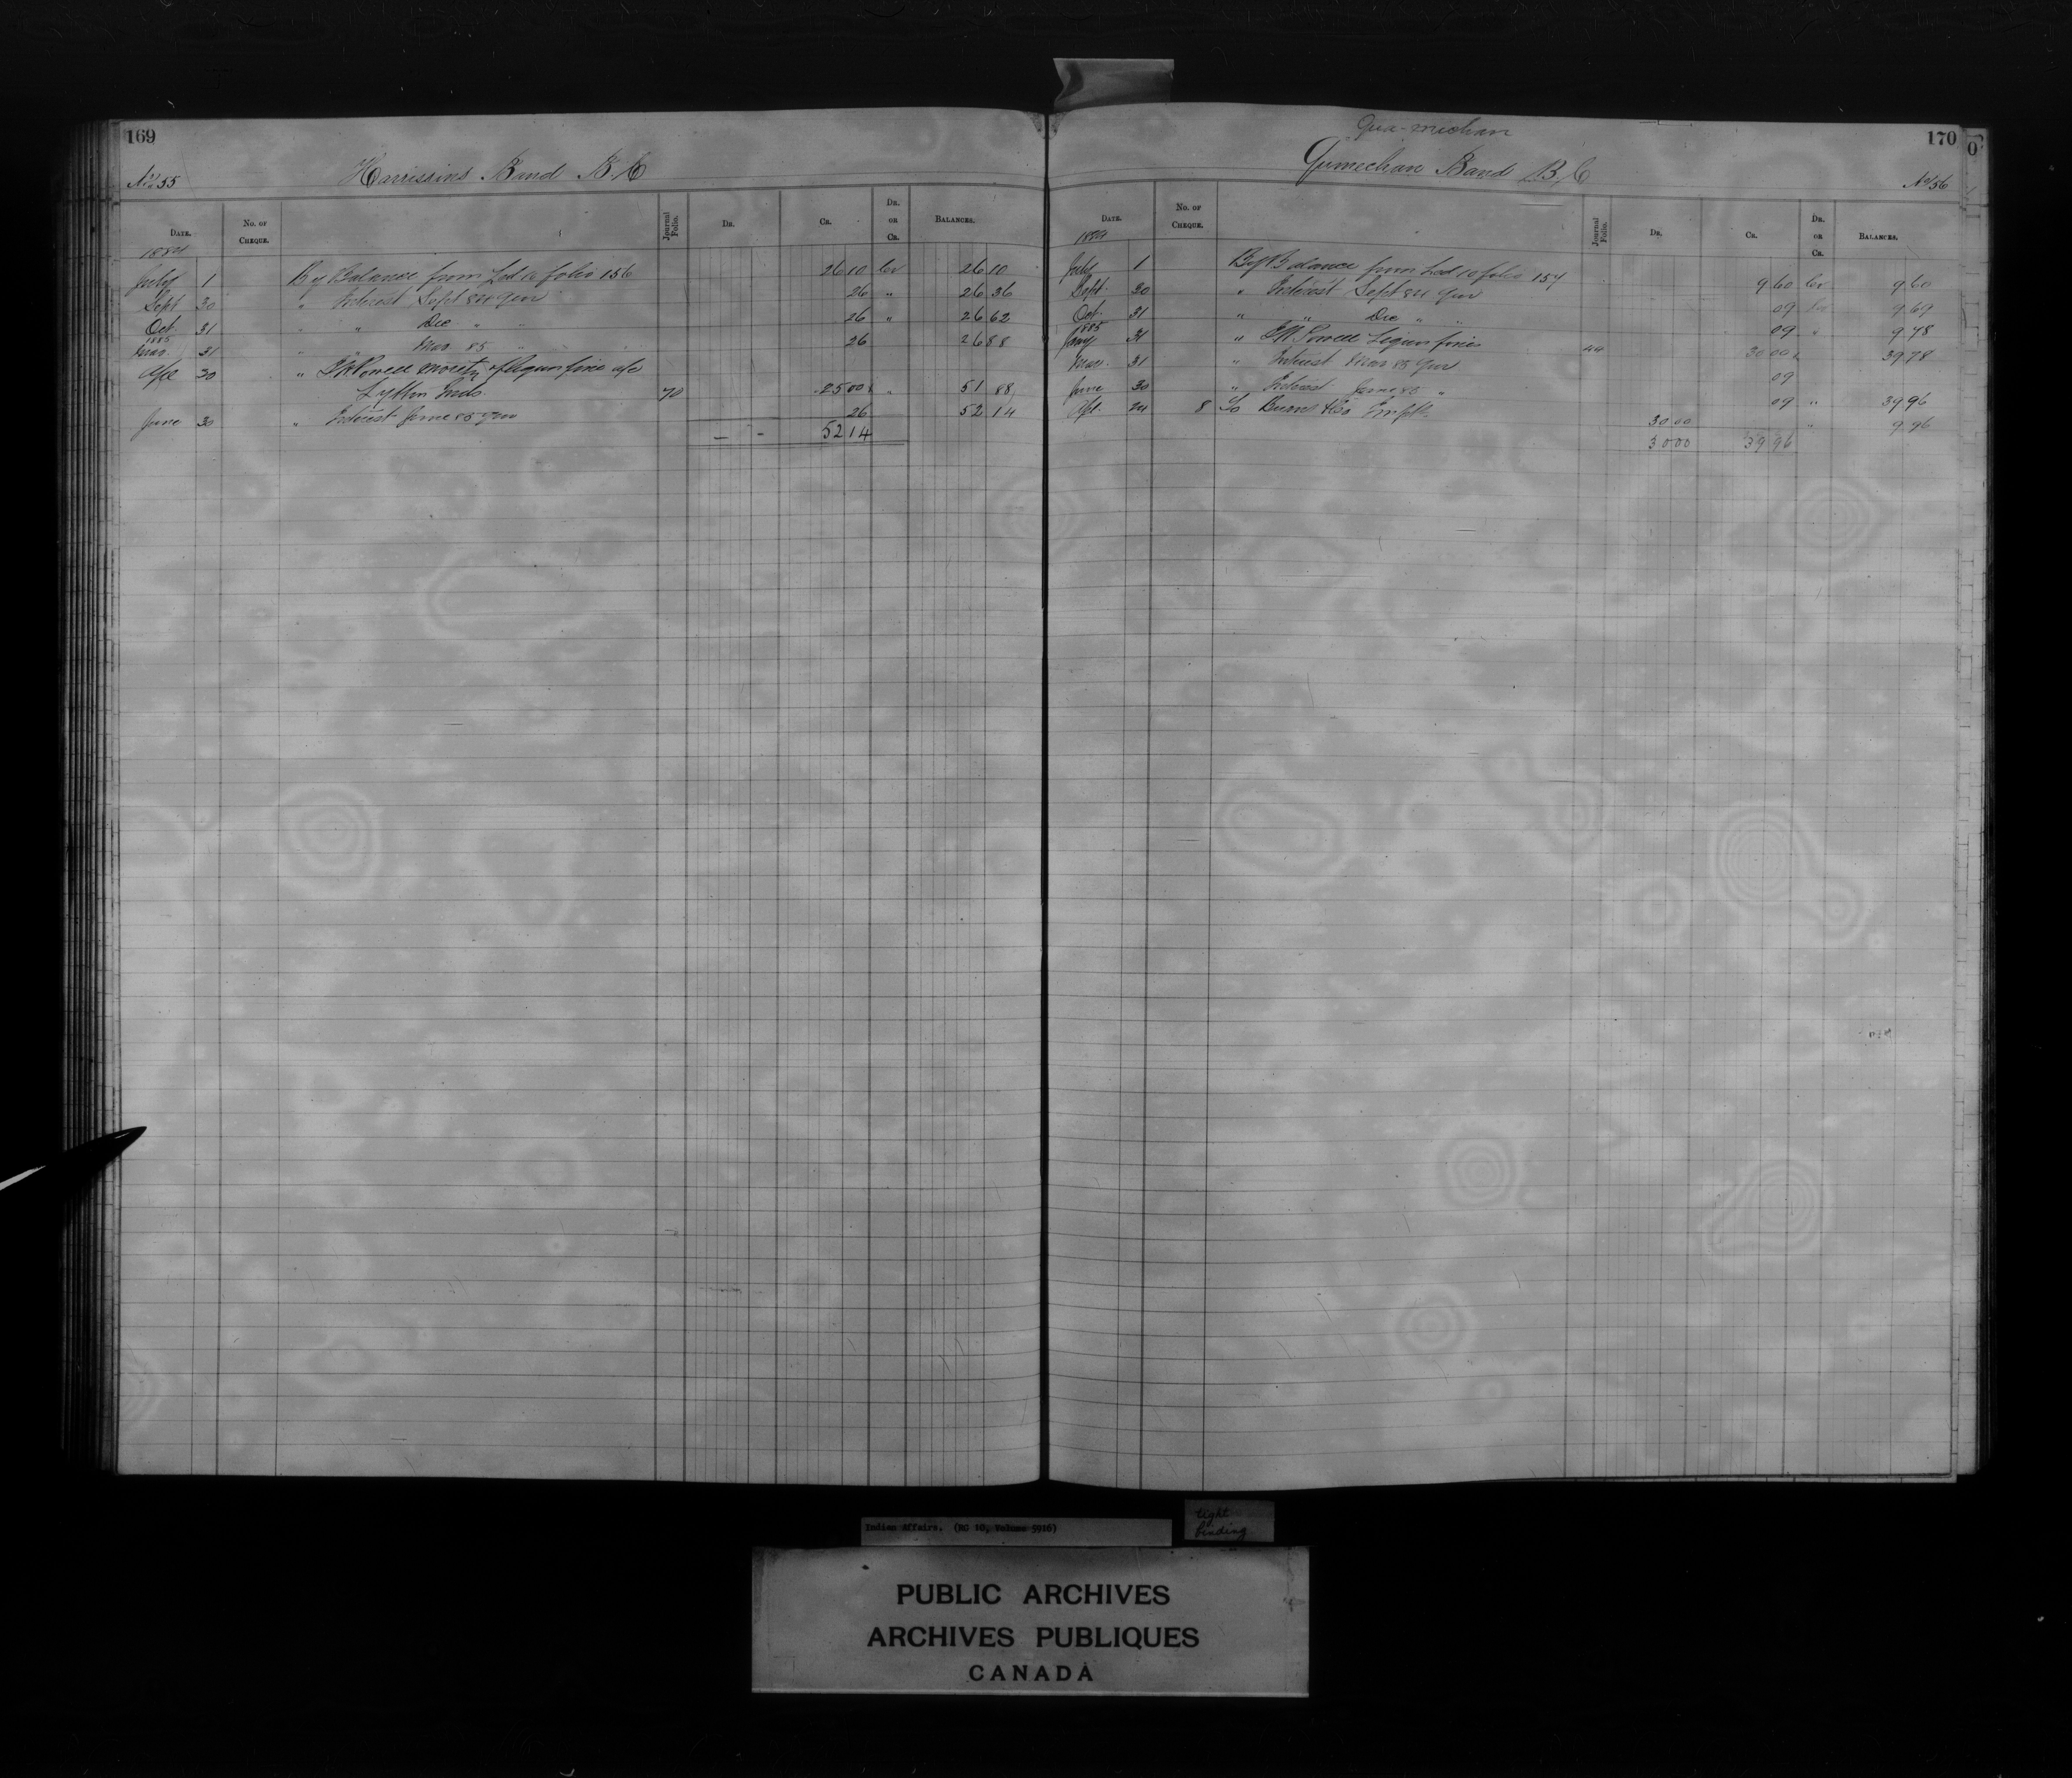 169
No 55
Harrisons Band B.C
DATE. No. OF CHEQUE. Journal Folio. DR. CR. DR. OR CR. BALANCES.
1884
July 1 By Balance from Led 10 folio 156 26 10 Cr 26 10
Sept 30 " Interest Sept 84 Qur 26 " 26 36
Oct. 31 " " Dec " " 26 " 26 62
1885
Mar. 31 " Mar 85 " 26 26 88
Apl 30 " Powell moiety of liquor fine a/c
Lytton Inds. 70 25 00 " 51 88
June 30 " Interest June 85 Qur 26 52 14
— - 52 14
170
Qua-michan
Qumechan Band B.C
No 56
DATE. No. OF CHEQUE. Journal Folio. DR. CR. DR. OR CR. BALANCES.
1884
July 1 By Balance from Led 10 folio 157 9 60 Cr 9 60
Sept. 30 " Interest Sept 84 Qur 09 9 69
Oct. 31 " " Dec " " 09 " 9 78
1885
Jany 31 " Powell Liquor fines 44 30 00 39 78
Mar. 31 " Interest Mar 85 Qur 09
June 30 " Interest June 85 " 09 " 39 96
Apl. 24 8 To 30 00 " 9 96
30 00 39 96
Indian Affairs. (RG 10, Volume 5916)
tight binding
PUBLIC ARCHIVES
ARCHIVES PUBLIQUES
CANADA